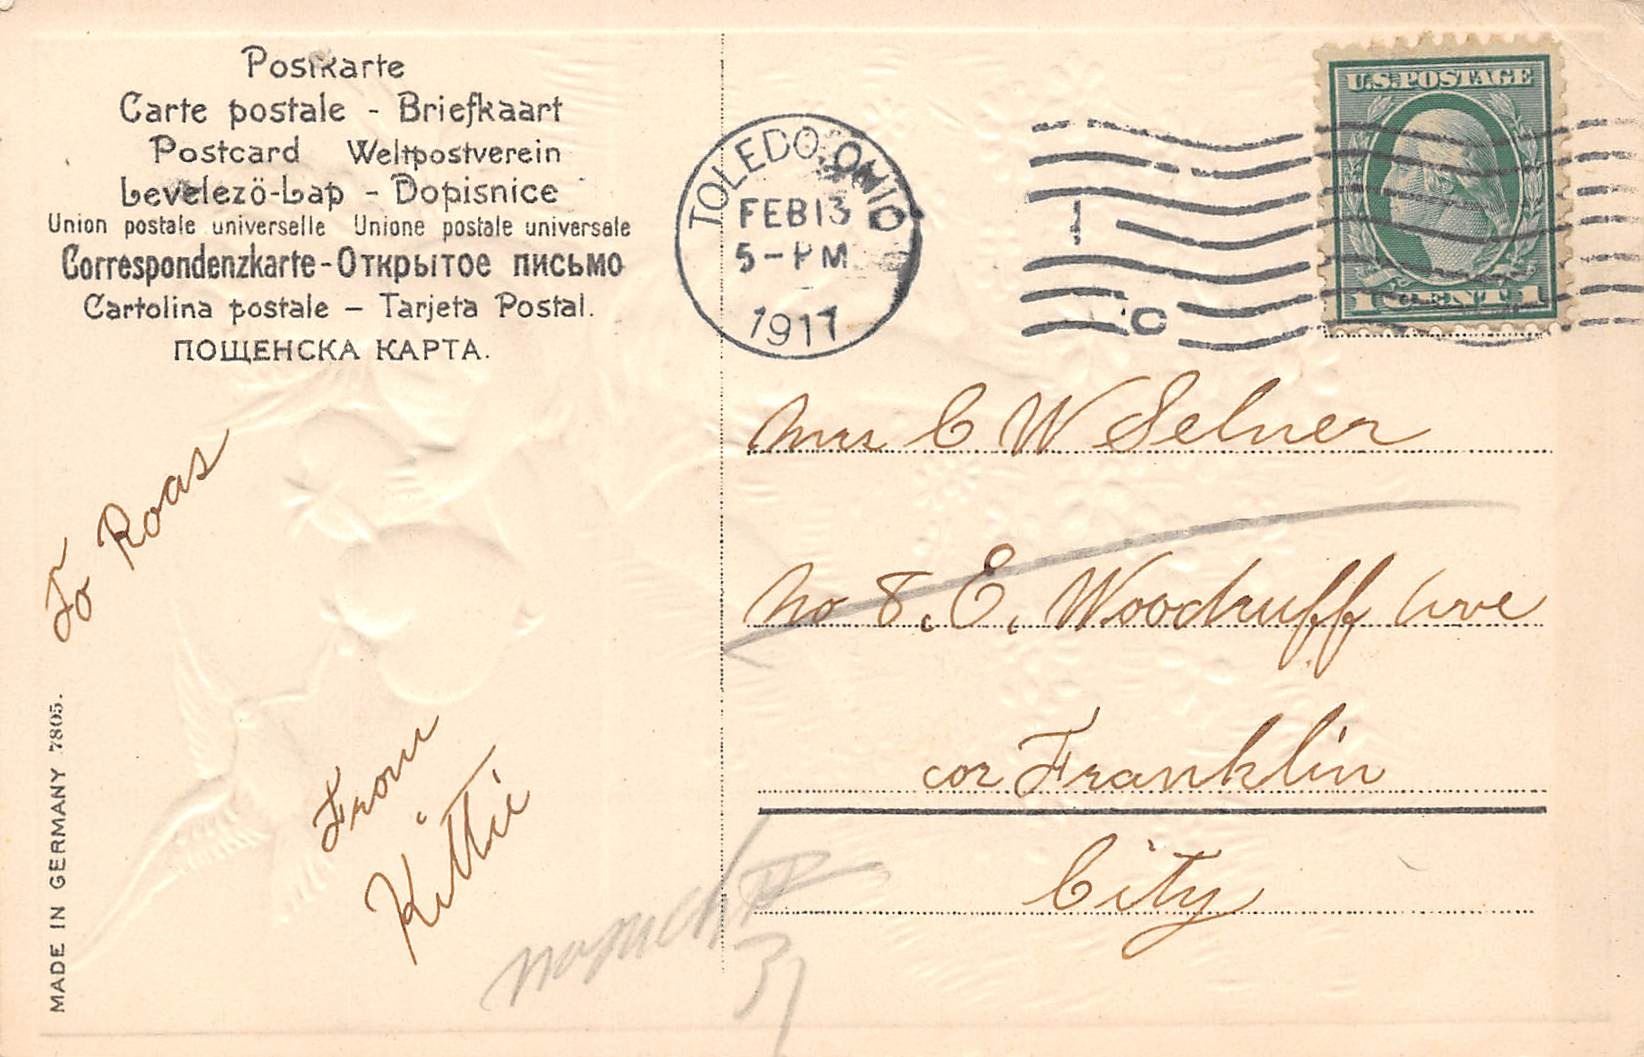 Postkarte
Carte postale - Briefkaart
Postcard Weltpostverein
Levelezö-Lap - Dopisnice
Union postale universelle Unione postale universale
Correspondenzkarte - Открытое письмо
Cartolina postale – Tarjeta Postal.
ПОЩЕНСКА КАРТА.
TOLEDO, OHIO
FEB 13
5 - PM
1911
1
C
U.S. POSTAGE
1 CENT 1
Mrs C W Selner
No 8. E. Woodruff Ave
cor Franklin
City
To Roas
From
Kittie
MADE IN GERMANY 7805.
no such #
31